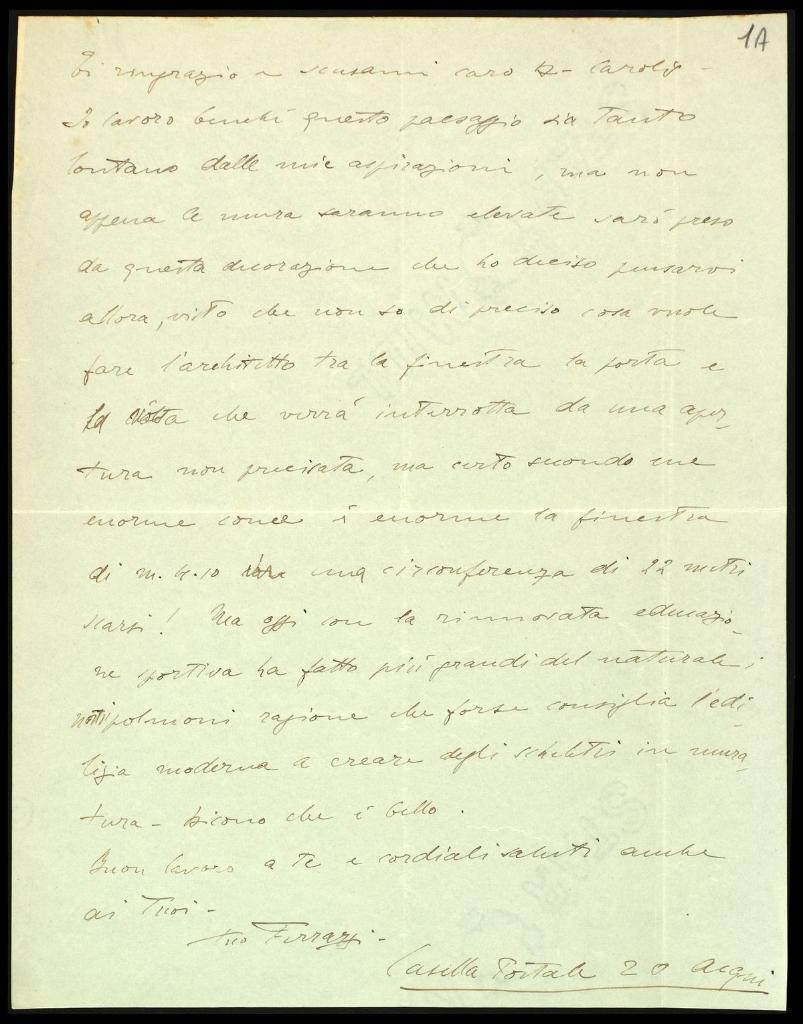 1A
Ti ringrazio e scusami caro De Carolis -
Io lavoro benché questo paesaggio sia tanto
lontano dalle mie aspirazioni, ma non
appena le mura saranno elevate sarò preso
da questa decorazione che ho deciso pensarvi
allora, visto che non so di preciso cosa vuole
fare l'architetto tra la finestra la porta e
la volta che verrà interrotta da una aper-
tura non precisata, ma certo secondo me
enorme come è enorme la finestra
di m. 4.10 una circonferenza di 22 metri
scarsi! Ma oggi con la rinnovata educazio-
ne sportiva ha fatto più grandi del naturale i
nostri polmoni ragione che forse consiglia l'edi-
lizia moderna a creare degli scheletri in mura-
tura - Dicono che è bello.
Buon lavoro a te e cordiali saluti anche
ai Tuoi -
tuo Ferrazzi -
Casella Postale 20 Acqui